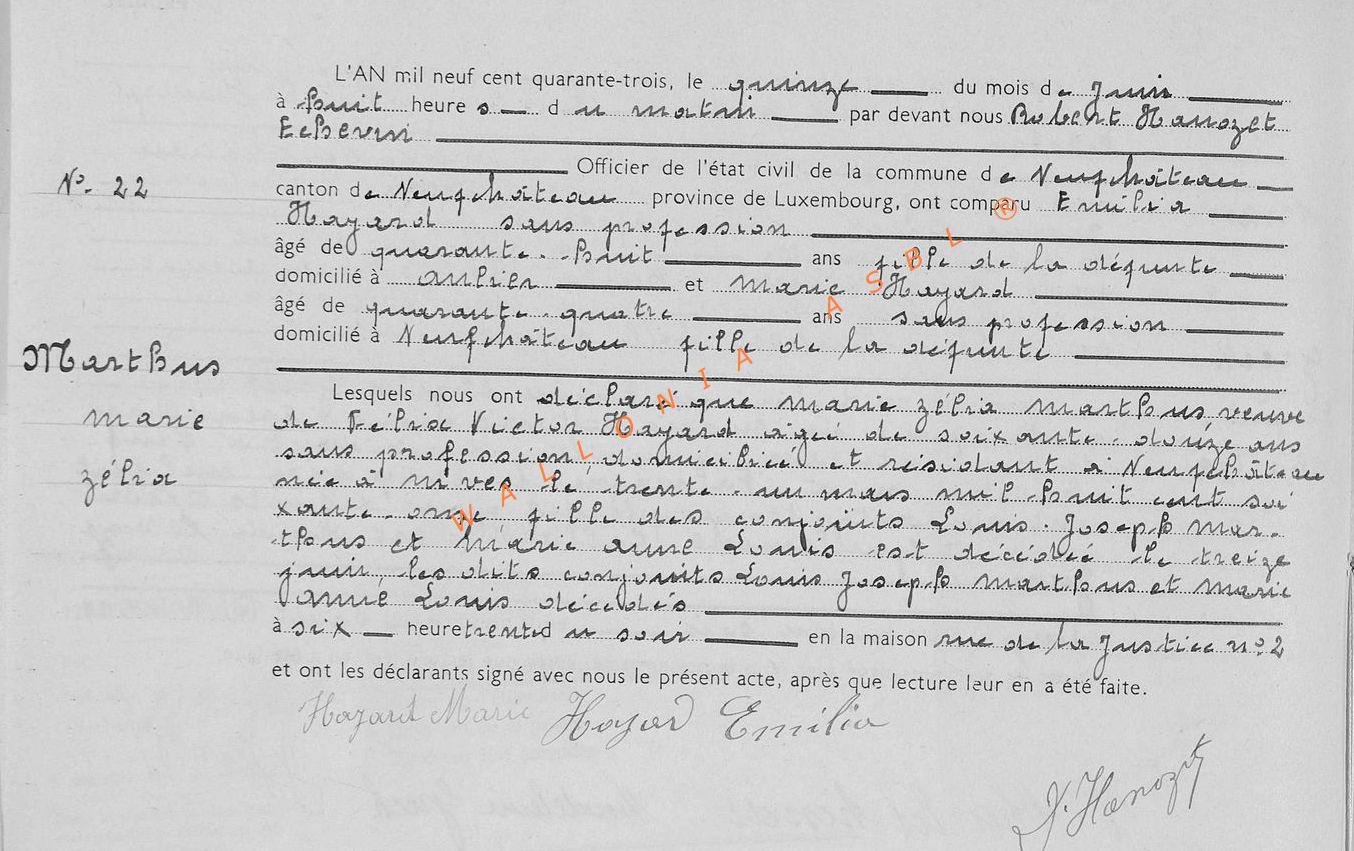 L'AN mil neuf cent quarante-trois, le quinze du mois de Juin
à huit heure s du matin par devant nous Robert Hanozet
Echevin
Officier de l'état civil de la commune de Neufchâteau
N°. 22
canton de Neufchâteau province de Luxembourg, ont comparu Emilia
Hayard sans profession
âgé de quarante-huit ans fille de la défunte
domicilié à Anlier et Marie Hayard
âgé de quarante-quatre ans sans profession
domicilié à Neufchâteau fille de la défunte
Marthus
marie
zélia
Lesquels nous ont déclaré que marie zélia marthus veuve
de Félix Victor Hayard agée de soixante-douze ans
sans profession, domiciliée et résidant à Neufchâteau
née à Nives le trente-un mars mil huit cent soi
xante-onze fille des conjoints Louis-Joseph Mar-
thus et marie anne Louis est décédée le treize
juin, les dits conjoints Louis Joseph marthus et marie
anne Louis décédés
à six heure trente du soir en la maison rue de la Justice n° 2
et ont les déclarants signé avec nous le présent acte, après que lecture leur en a été faite.
Hayard Marie Hayard Emilia
R. Hanozet
WALLONIA ASBL ®